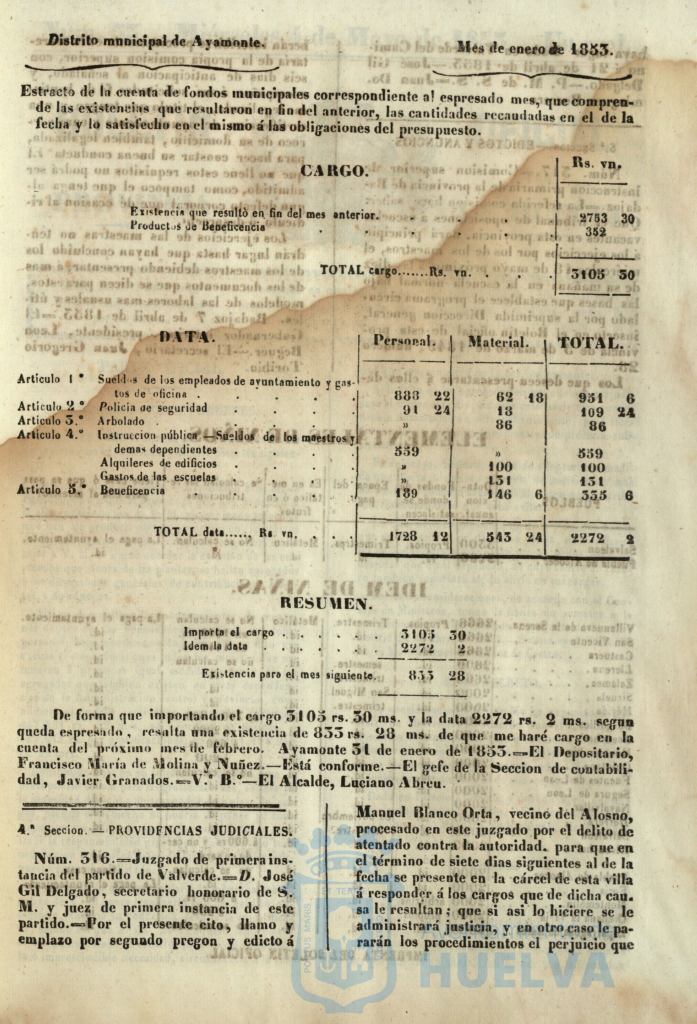 Distrito municipal de Ayamonte. Mes de enero de 1853.
Estracto de la cuenta de fondos municipales correspondiente al espresado mes, que compren-
de las existencias que resultaron en fin del anterior, las cantidades recaudadas en el de la
fecha y lo satisfecho en el mismo á las obligaciones del presupuesto.
CARGO. Rs. vn.
Existencia que resultò en fin del mes anterior. 2753 30
Productos de Beneficencia 352
TOTAL cargo.......Rs. vn. 3105 30
DATA. Personal. Material. TOTAL.
Artículo 1.º Sueldos de los empleados de ayuntamiento y gas-
tos de oficina . 888 22 62 18 951 6
Artículo 2.º Policia de seguridad 91 24 18 109 24
Artículo 3.º Arbolado . » 86 86
Artículo 4.º Instruccion pública—Sueldos de los maestros y
demas dependientes 559 » 559
Alquileres de edificios » 100 100
Gastos de las escuelas » 131 131
Artículo 5.º Beneficencia 189 146 6 335 6
TOTAL data...... Rs vn. 1728 12 543 24 2272 2
RESUMEN.
Importa el cargo 3105 30
Idem la data 2272 2
Existencia para el mes siguiente. 833 28
De forma que importando el cargo 3105 rs. 30 ms. y la data 2272 rs. 2 ms. segun
queda espresado, resulta una existencia de 833 rs. 28 ms. de que me haré cargo en la
cuenta del próximo mes de febrero. Ayamonte 31 de enero de 1853.=El Depositario,
Francisco María de Molina y Nuñez.—Está conforme.—El gefe de la Seccion de contabili-
dad, Javier Granados.=V.º B.º—El Alcalde, Luciano Abreu.
4.ª Seccion.—PROVIDENCIAS JUDICIALES.
Núm. 316.=Juzgado de primera ins-
tancia del partido de Valverde.=D. José
Gil Delgado, secretario honorario de S.
M. y juez de primera instancia de este
partido.=Por el presente cito, llamo y
emplazo por segundo pregon y edicto á
Manuel Blanco Orta, vecino del Alosno,
procesado en este juzgado por el delito de
atentado contra la autoridad. para que en
el término de siete dias siguientes al de la
fecha se presente en la cárcel de esta villa
á responder á los cargos que de dicha cau-
sa le resultan; que si asi lo hiciere se le
administrará justicia, y en otro caso le pa-
rarán los procedimientos el perjuicio que
HUELVA